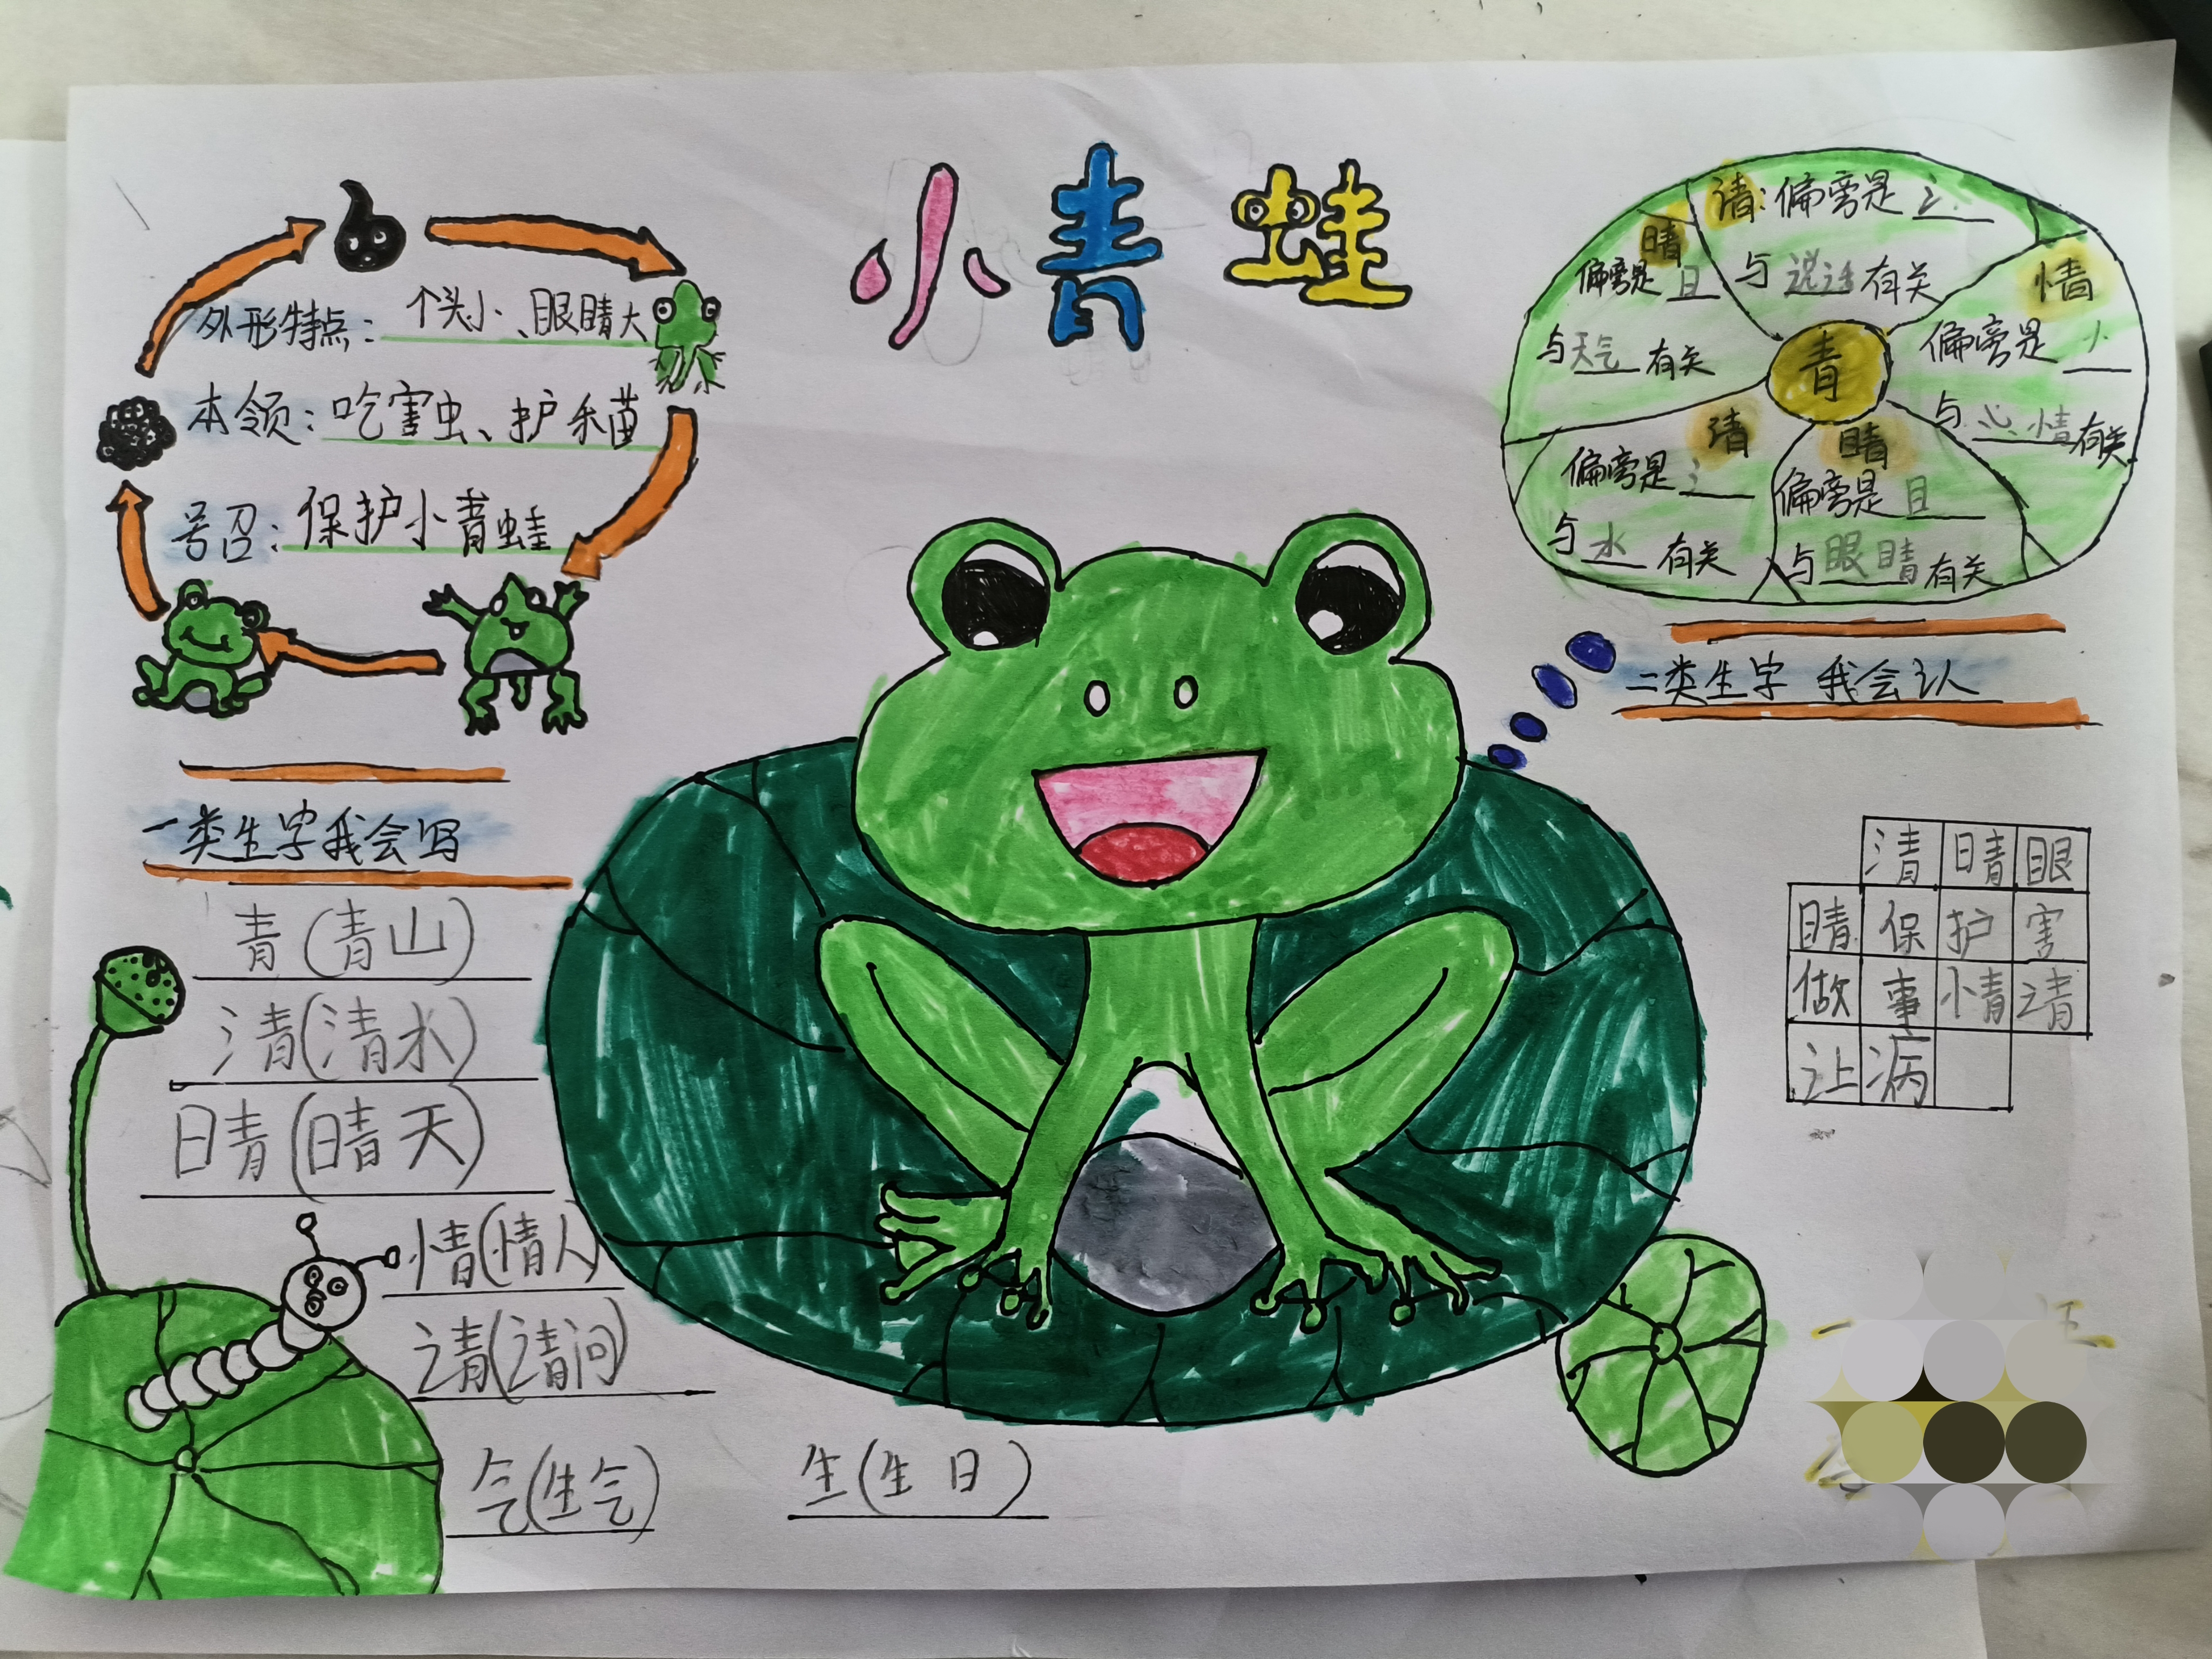 小青蛙
外形特点：个头小、眼睛大
本领：吃害虫、护禾苗
号召：保护小青蛙
请：偏旁是讠
与说话有关
晴
偏旁是日
与天气有关
情
偏旁是忄
与心情有关
青
清
偏旁是氵
与水有关
睛
偏旁是目
与眼睛有关
二类生字 我会认
一类生字我会写
青（青山）
清（清水）
晴（晴天）
情（情人）
请（请问）
气（生气）
生（生日）
清 晴 眼
睛 保 护 害
做 事 情 请
让 病